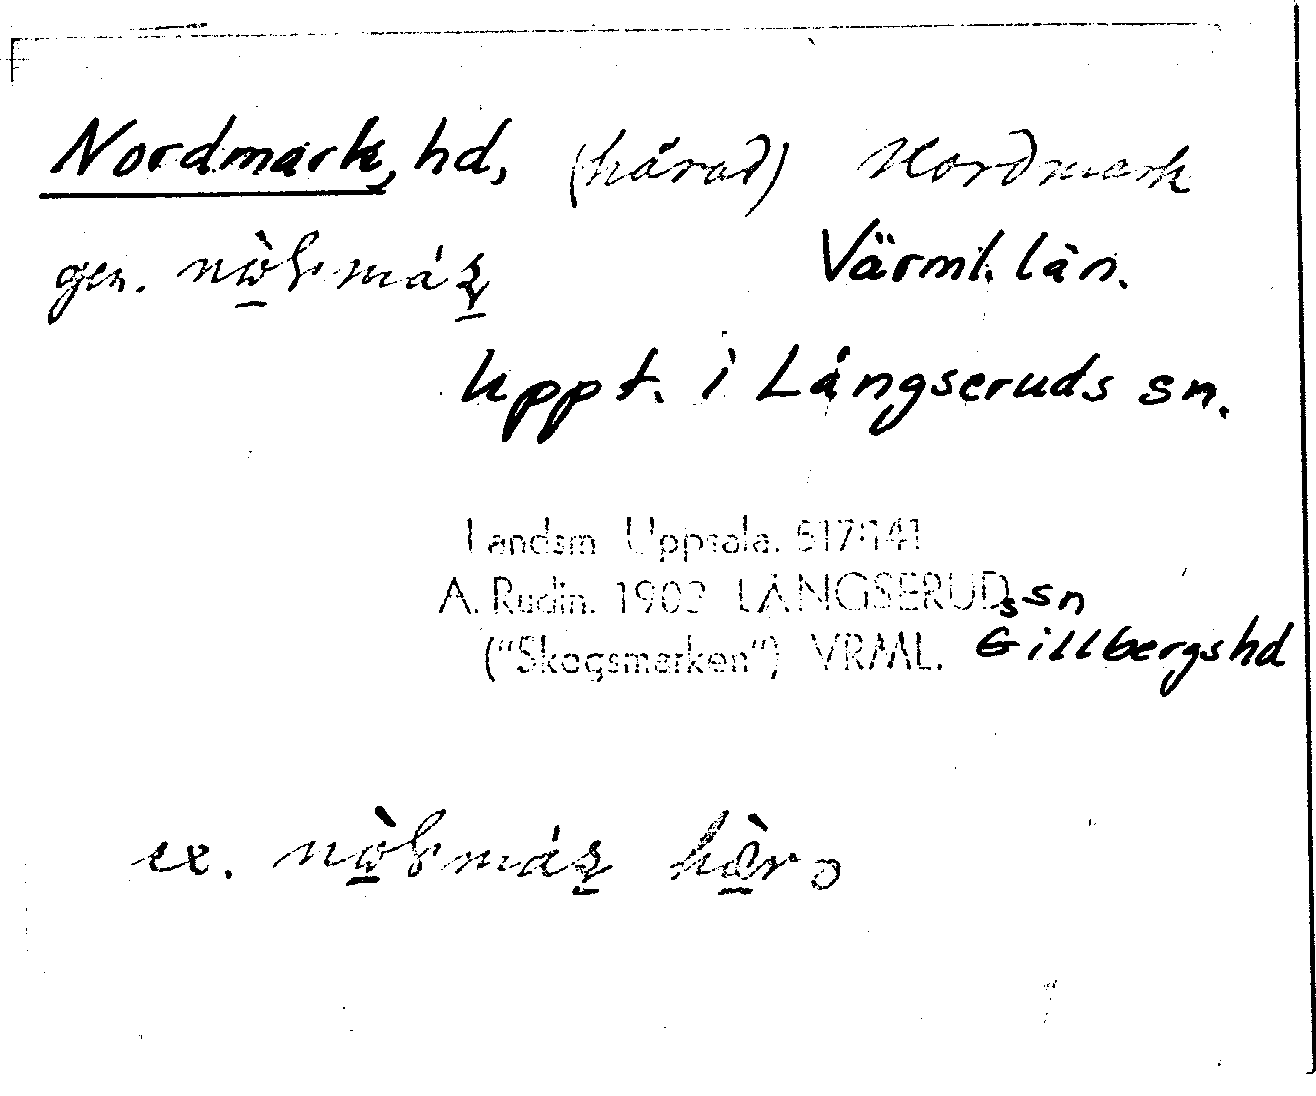 Nordmark, hd, (härad) Nordmark
gen. Värml. län.
Uppt. i Långseruds sn.
Landsm Uppsala. 517:141
A. Rudin. 1902 LÅNGSERUDs sn
("Skogsmarken") VRML. Gillbergs hd
ex.